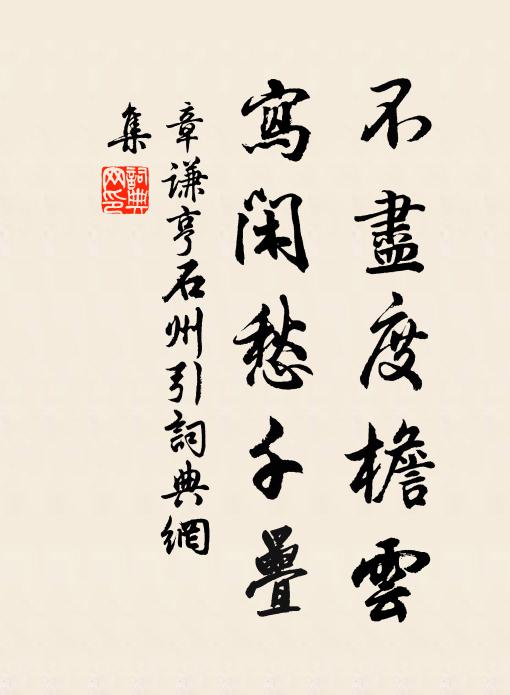 不盡度檐雲
寫閑愁千疊
章謙亨石州引詞典網
集
詞典
网印